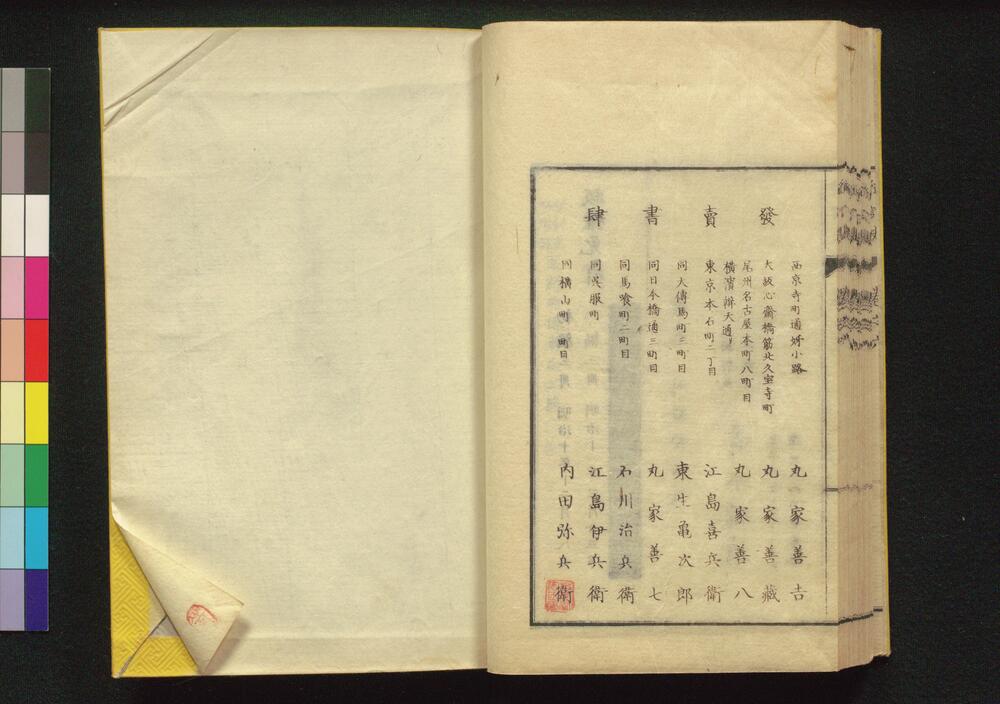 發賣書肆
西京寺町通姉小路 丸家善吉
大坂心齋橋筋北久宝寺町 丸家善藏
尾州名古屋本町八町目 丸家善八
橫濱辨天通リ
東京本石町二丁目 江島喜兵衛
同大傳馬町三町目 東生亀次郎
同日本橋通三町目 丸家善七
同馬喰町二町目 石川治兵衛
同呉服町 江島伊兵衛
同橫山町 町目 内田弥兵衛